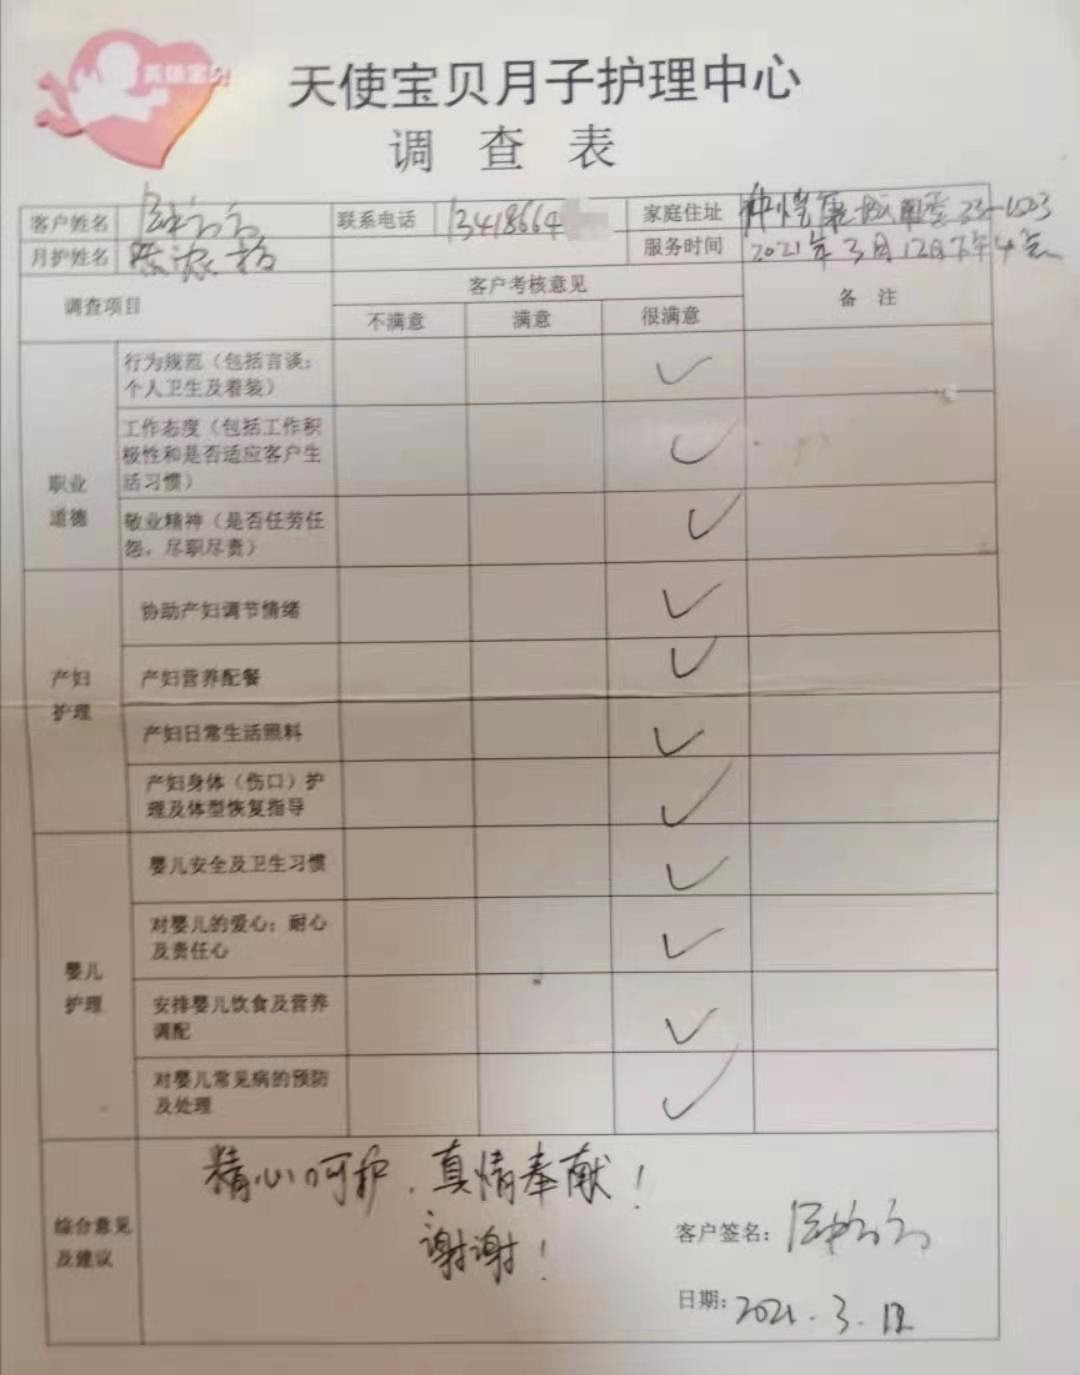 天使宝贝
天使宝贝月子护理中心
调 查 表
客户姓名 联系电话 13418664 家庭住址 23-1503
月护姓名 服务时间 2021年3月12日下午4点
调查项目 客户考核意见 备 注
不满意 满意 很满意
职业
道德
行为规范（包括言谈；
个人卫生及着装）
工作态度（包括工作积
极性和是否适应客户生
活习惯）
敬业精神（是否任劳任
怨，尽职尽责）
产妇
护理
协助产妇调节情绪
产妇营养配餐
产妇日常生活照料
产妇身体（伤口）护
理及体型恢复指导
婴儿
护理
婴儿安全及卫生习惯
对婴儿的爱心；耐心
及责任心
安排婴儿饮食及营养
调配
对婴儿常见病的预防
及处理
综合意见
及建议
精心呵护，真情奉献！
谢谢！
客户签名：
日期：2021.3.12